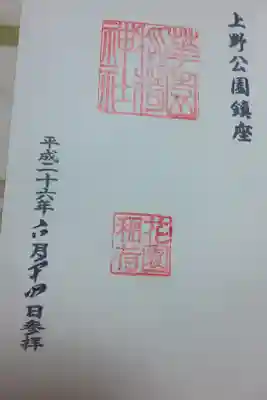 上野公園鎮座
稲荷
神社
花園
稲荷
平成二十六年六月四日参拝